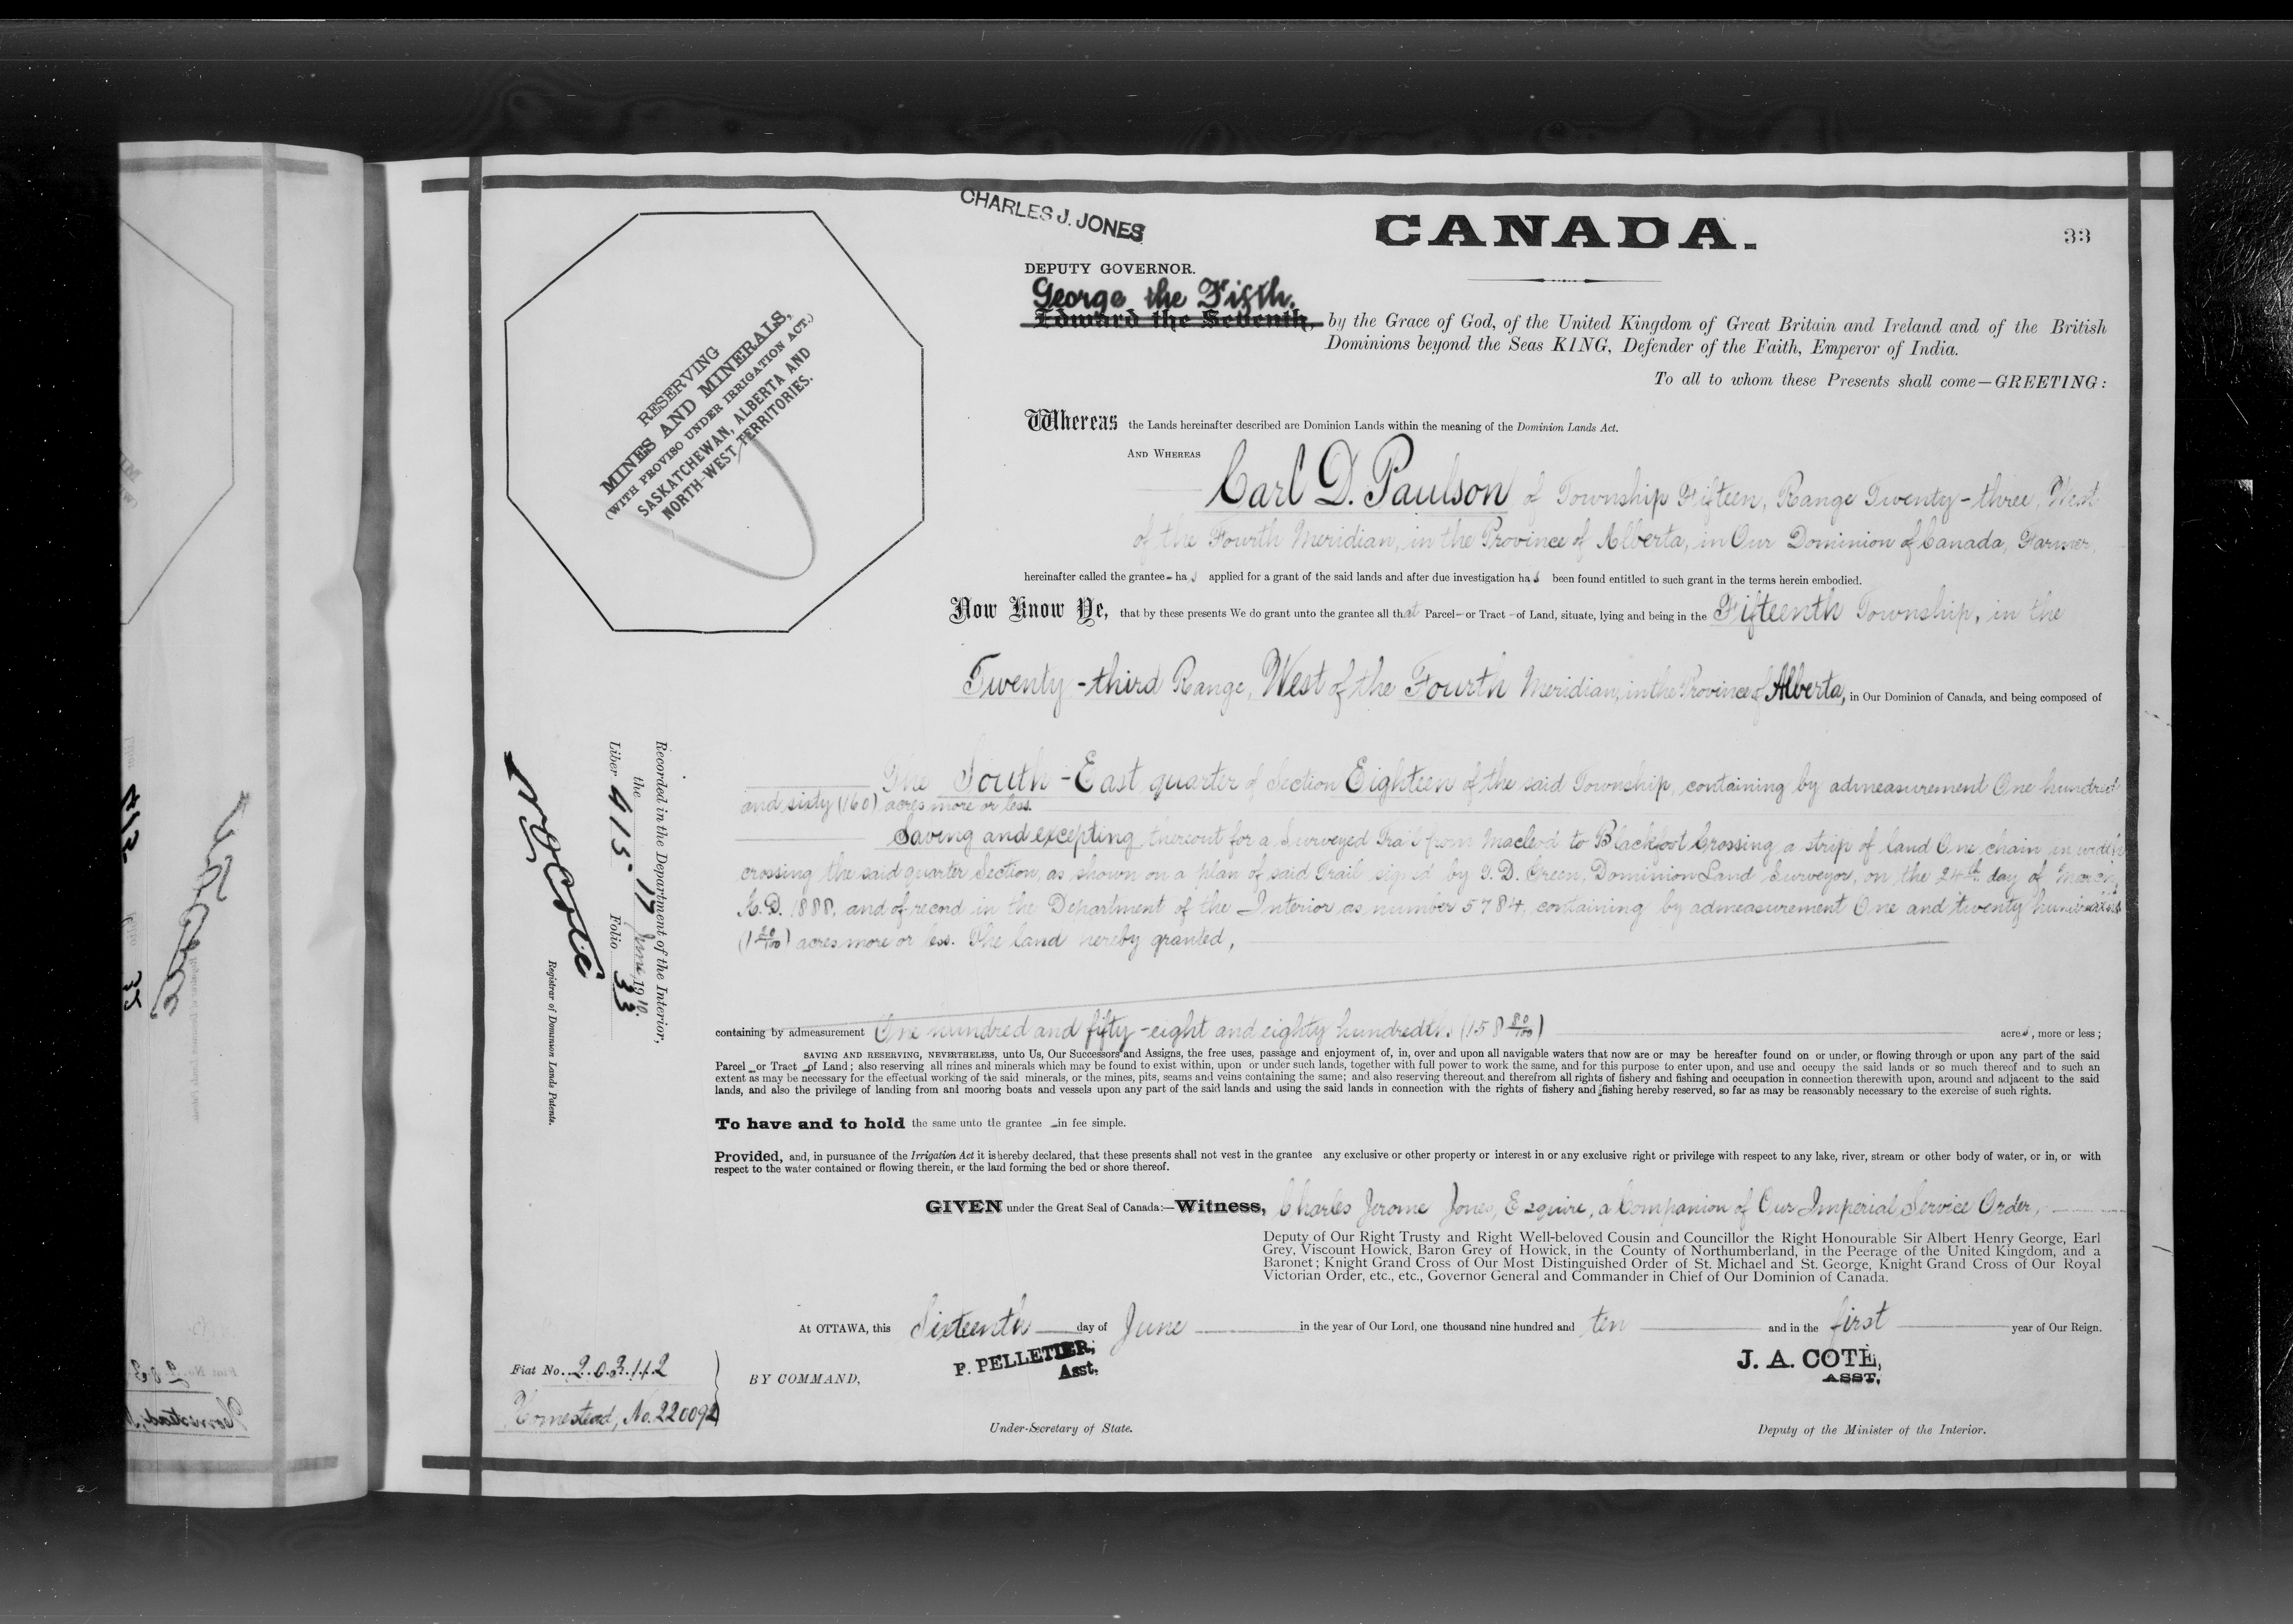 CHARLES J. JONES
CANADA.
33
DEPUTY GOVERNOR.
George the Fifth.
Edward the Seventh, by the Grace of God, of the United Kingdom of Great Britain and Ireland and of the British
Dominions beyond the Seas KING, Defender of the Faith, Emperor of India.
To all to whom these Presents shall come—GREETING:
RESERVING
MINES AND MINERALS,
(WITH PROVISO UNDER IRRIGATION ACT.)
SASKATCHEWAN, ALBERTA AND
NORTH-WEST TERRITORIES.
Whereas the Lands hereinafter described are Dominion Lands within the meaning of the Dominion Lands Act.
AND WHEREAS
Carl D. Paulson of Township Fifteen, Range Twenty-three, West
of the Fourth Meridian, in the Province of Alberta, in Our Dominion of Canada, Farmer,
hereinafter called the grantee - has applied for a grant of the said lands and after due investigation has been found entitled to such grant in the terms herein embodied.
Now Know Ye, that by these presents We do grant unto the grantee all that Parcel - or Tract - of Land, situate, lying and being in the Fifteenth Township, in the
Twenty-third Range, West of the Fourth Meridian, in the Province of Alberta, in Our Dominion of Canada, and being composed of
The South-East quarter of Section Eighteen of the said Township, containing by admeasurement One hundred
and sixty (160) acres more or less.
Saving and excepting thereout for a Surveyed Trail from Macleod to Blackfoot Crossing a strip of land One chain in width
crossing the said quarter Section, as shown on a plan of said Trail signed by T. D. Green, Dominion Land Surveyor, on the 24th day of March,
A.D. 1888, and of record in the Department of the Interior as number 5784, containing by admeasurement One and twenty hundredths
(1 20/100) acres more or less. The land hereby granted,
containing by admeasurement One hundred and fifty-eight and eighty hundredths (158 80/100) acres, more or less;
SAVING AND RESERVING, NEVERTHELESS, unto Us, Our Successors and Assigns, the free uses, passage and enjoyment of, in, over and upon all navigable waters that now are or may be hereafter found on or under, or flowing through or upon any part of the said
Parcel - or Tract - of Land; also reserving all mines and minerals which may be found to exist within, upon or under such lands, together with full power to work the same, and for this purpose to enter upon, and use and occupy the said lands or so much thereof and to such an
extent as may be necessary for the effectual working of the said minerals, or the mines, pits, seams and veins containing the same; and also reserving thereout and therefrom all rights of fishery and fishing and occupation in connection therewith upon, around and adjacent to the said
lands, and also the privilege of landing from and mooring boats and vessels upon any part of the said lands and using the said lands in connection with the rights of fishery and fishing hereby reserved, so far as may be reasonably necessary to the exercise of such rights.
To have and to hold the same unto the grantee - in fee simple.
Provided, and, in pursuance of the Irrigation Act it is hereby declared, that these presents shall not vest in the grantee any exclusive or other property or interest in or any exclusive right or privilege with respect to any lake, river, stream or other body of water, or in, or with
respect to the water contained or flowing therein, or the land forming the bed or shore thereof.
GIVEN under the Great Seal of Canada:—Witness, Charles Jerome Jones, Esquire, a Companion of Our Imperial Service Order,
Deputy of Our Right Trusty and Right Well-beloved Cousin and Councillor the Right Honourable Sir Albert Henry George, Earl
Grey, Viscount Howick, Baron Grey of Howick, in the County of Northumberland, in the Peerage of the United Kingdom, and a
Baronet; Knight Grand Cross of Our Most Distinguished Order of St. Michael and St. George, Knight Grand Cross of Our Royal
Victorian Order, etc., etc., Governor General and Commander in Chief of Our Dominion of Canada.
At OTTAWA, this Sixteenth day of June in the year of Our Lord, one thousand nine hundred and ten and in the first year of Our Reign.
P. PELLETIER,
Asst.
J. A. COTÉ,
ASST.
BY COMMAND,
Under-Secretary of State.
Deputy of the Minister of the Interior.
Fiat No. 203112
Homestead, No. 220092
Recorded in the Department of the Interior,
the 17 June 1910.
Liber 415 Folio 33
Registrar of Dominion Lands Patents.